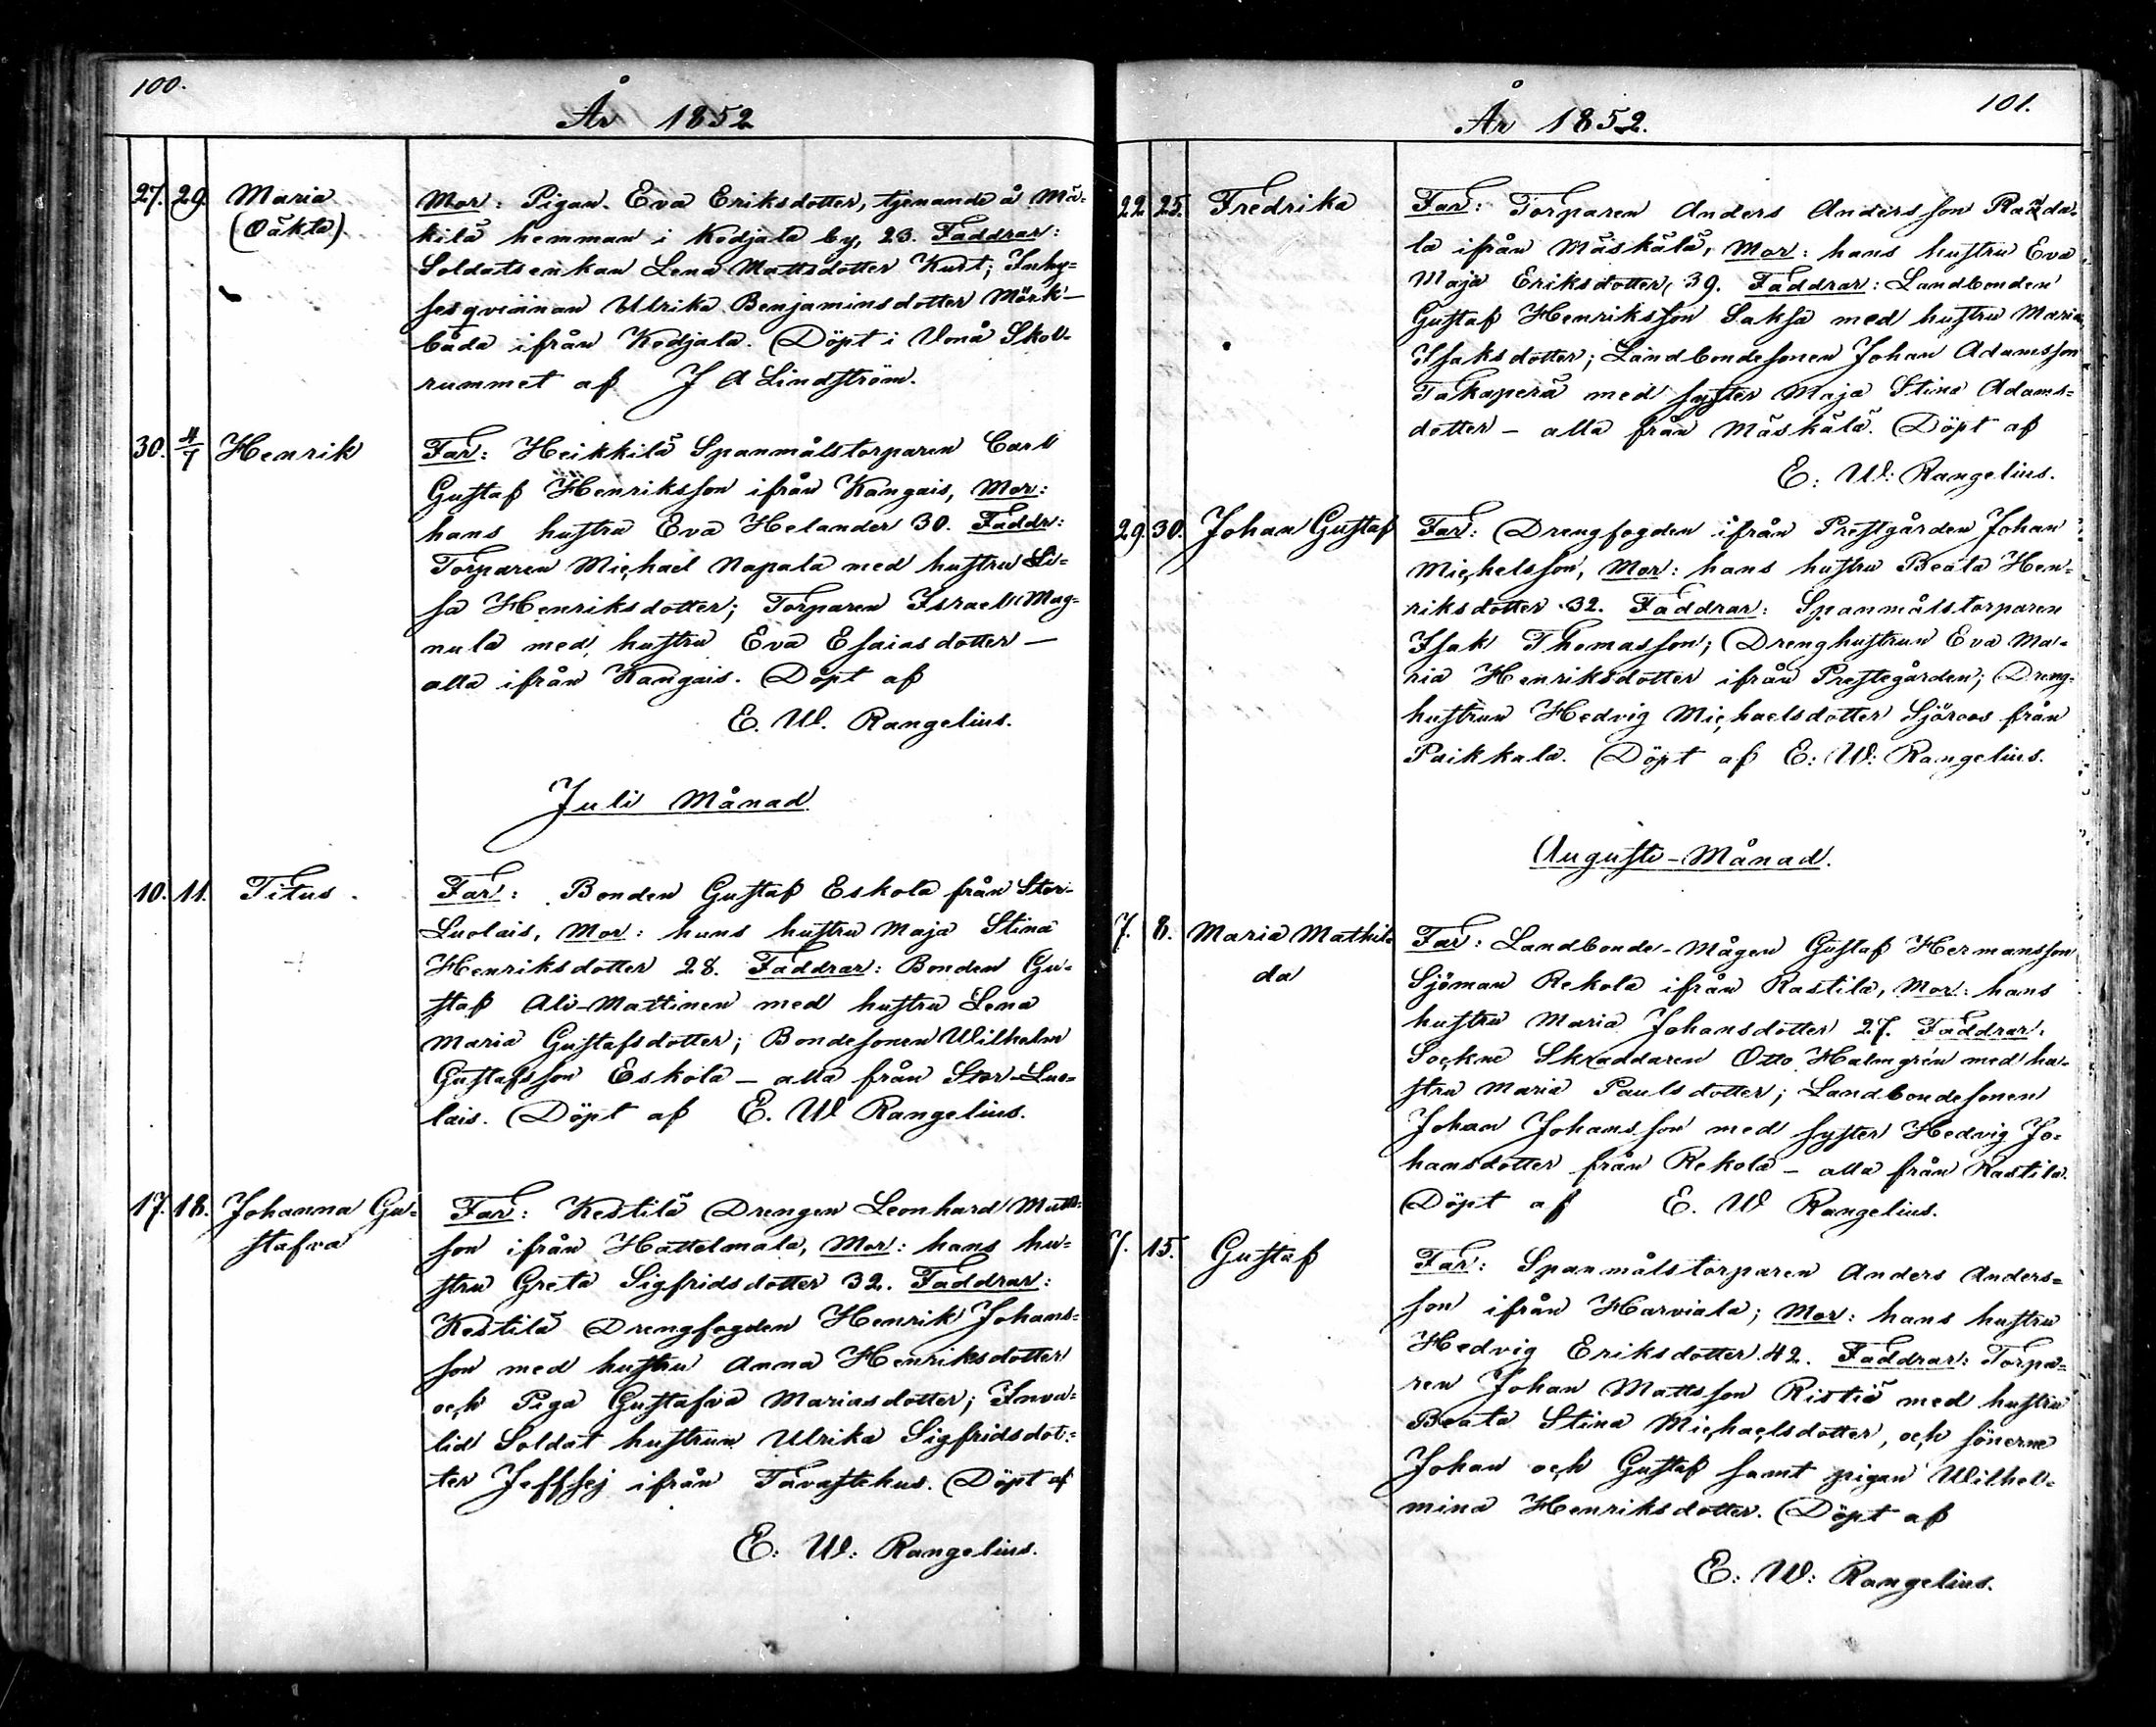 100.
År 1852
27. 29. Maria Mor: Pigan Eva Eriksdotter, tjenande å Mä-
(Oäkta) kilä hemman i Kedjala by, 23. Faddrar:
Soldatsenkan Lena Mattsdotter Kurt; Inhy-
sesqvinnan Ulrika Benjaminsdotter Mörk —
båda ifrån Kedjala. Döpt i Vonå Skol-
rummet af J A Lindström.
30. 4/7 Henrik Far: Heikkilä Spanmålstorparen Carl
Gustaf Henriksson ifrån Kangais, Mor:
hans hustru Eva Helander 30. Faddr:
Torparen Michael Napala med hustru Li-
sa Henriksdotter; Torparen Israel Mag-
nula med hustru Eva Esaiasdotter —
alla ifrån Kangais. Döpt af
E. W. Rangelius.
Juli Månad.
10. 11. Titus. Far: Bonden Gustaf Eskola från Stor-
Luolais, Mor: hans hustru Maja Stina
Henriksdotter 28. Faddrar: Bonden Gu-
staf Ali-Mattinen med hustru Lena
Maria Gustafsdotter; Bondesonen Wilhelm
Gustafsson Eskola — alla från Stor-Luo-
lais. Döpt af E. W Rangelius.
17. 18. Johanna Gu- Far: Kestilä Drengen Leonhard Matts-
stafva son ifrån Hattelmala, Mor: hans hu-
stru Greta Sigfridsdotter 32. Faddrar:
Kestilä Drengfogden Henrik Johans-
son med hustru Anna Henriksdotter
och Piga Gustafva Mariasdotter; Inva-
lid Soldat hustrun Ulrika Sigfridsdot-
ter Jeffsej ifrån Tavastehus. Döpt af
E: W: Rangelius.
101.
År 1852.
22. 25. Fredrika Far: Torparen Anders Andersson
la ifrån Mäskälä, Mor: hans hustru Eva
Maja Eriksdotter, 39. Faddrar: Landbonden
Gustaf Henriksson Saksa med hustru Maria
Isaksdotter; Landbondesonen Johan Adamsson
Takaperä med syster Maja Stina Adams-
dotter — alla från Mäskälä. Döpt af
E: W: Rangelius.
29. 30. Johan Gustaf Far: Drengfogden ifrån Prestgården Johan
Michelsson, Mor: hans hustru Beata Hen-
riksdotter 32. Faddrar: Spanmålstorparen
Isak Thomasson; Drenghustrun Eva Ma-
ria Henriksdotter ifrån Prestegården; Dreng-
hustrun Hedvig Michaelsdotter Sjöroos från
Paikkala. Döpt af E: W: Rangelius.
Augusti-Månad.
7. 8. Maria Mathil- Far: Landbonde-Mågen Gustaf Hermansson
da Sjöman Rekola ifrån Rastila, Mor: hans
hustru Maria Johansdotter 27. Faddrar:
Sockne Skraddaren Otto Halmgrén med hu-
stru Maria Paulsdotter; Landbondesonen
Johan Johansson med syster Hedvig Jo-
hansdotter från Rekola — alla från Rastila.
Döpt af E. W Rangelius.
7. 15. Gustaf Far: Spanmålstorparen Anders Anders-
son ifrån Harviala; Mor: hans hustru
Hedvig Eriksdotter 42. Faddrar: Torpa-
ren Johan Mattsson Ristiä med hustru
Beata Stina Michaelsdotter, och sönerne
Johan och Gustaf samt pigan Wilhel-
mina Henriksdotter. Döpt af
E: W: Rangelius.